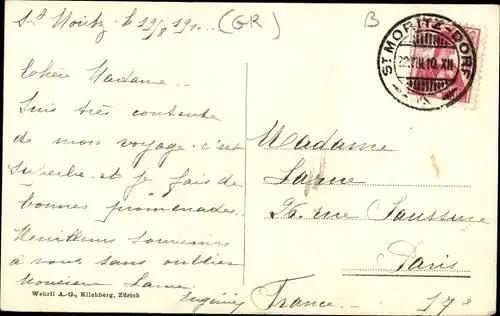 St Moritz - le 19/8 191...
(GR)
B
ST MORITZ-DORF
22.VIII.10. XII
Chère Madame
Suis très contente
de mon voyage. c'est
superbe et je fais de
bonnes promenades.
Meilleurs souvenirs
à vous sans oublier
Monsieur Larue
Eugénie
Wehrli A.-G., Kilchberg, Zürich
Madame
Larue
rue Saussure
Paris
France. 17e